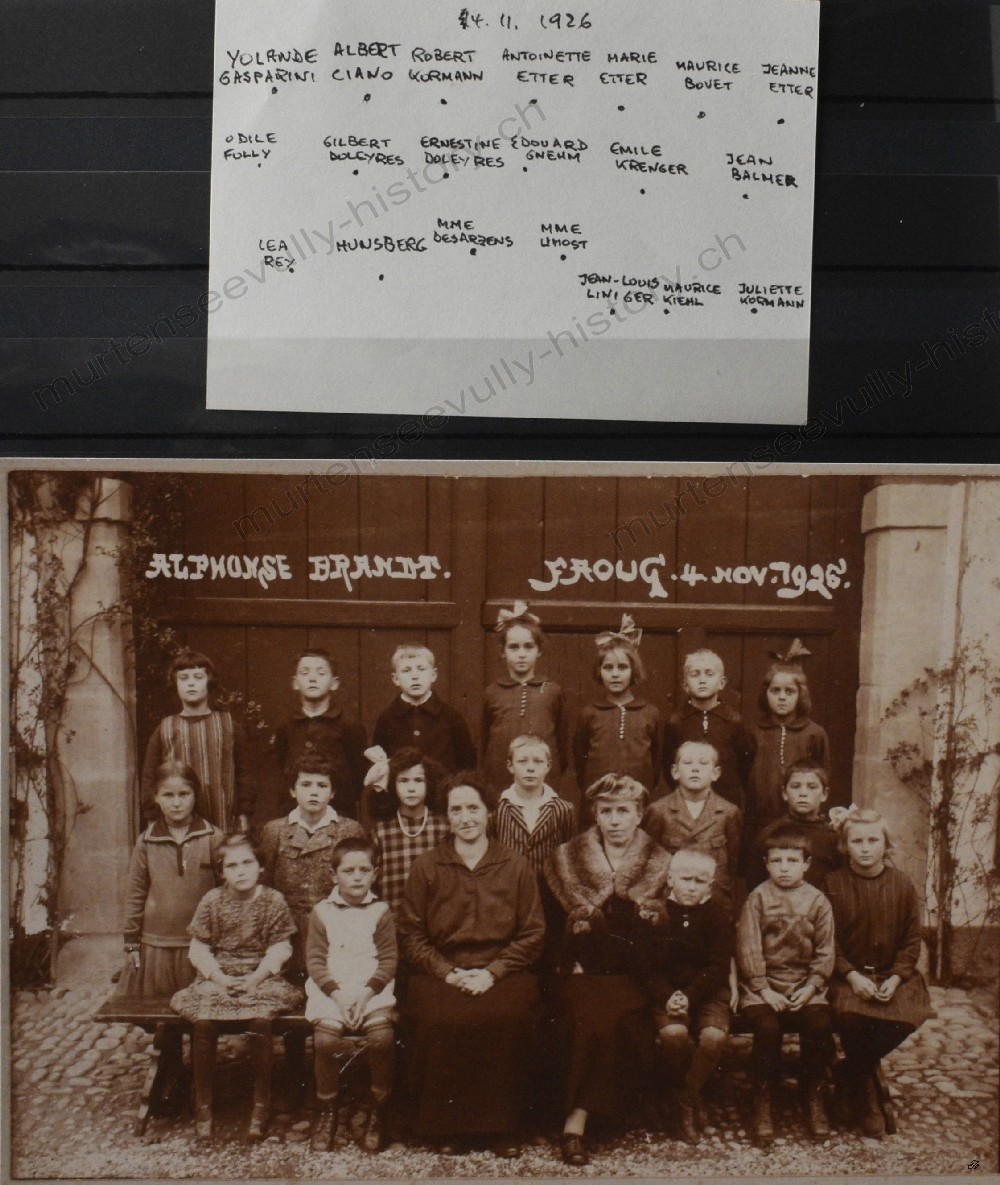 4. 11. 1926
YOLANDE ALBERT ROBERT ANTOINETTE MARIE MAURICE JEANNE
GASPARINI CIANO KORMANN ETTER ETTER BOVET ETTER
ODILE GILBERT ERNESTINE EDOUARD EMILE JEAN
FOLLY DOLEYRES DOLEYRES GNEHM KRENGER BALMER
LEA HUNSBERG MME MME
REY DESARZENS LIHOST
JEAN-LOUIS MAURICE JULIETTE
LINIGER KIEHL KORMANN
ALPHONSE BRANDT. FAOUG. 4 NOV. 1926.
murtenseevully-history.ch
murtenseevully-history.ch
murtenseevully-history.ch
murtenseevully-history